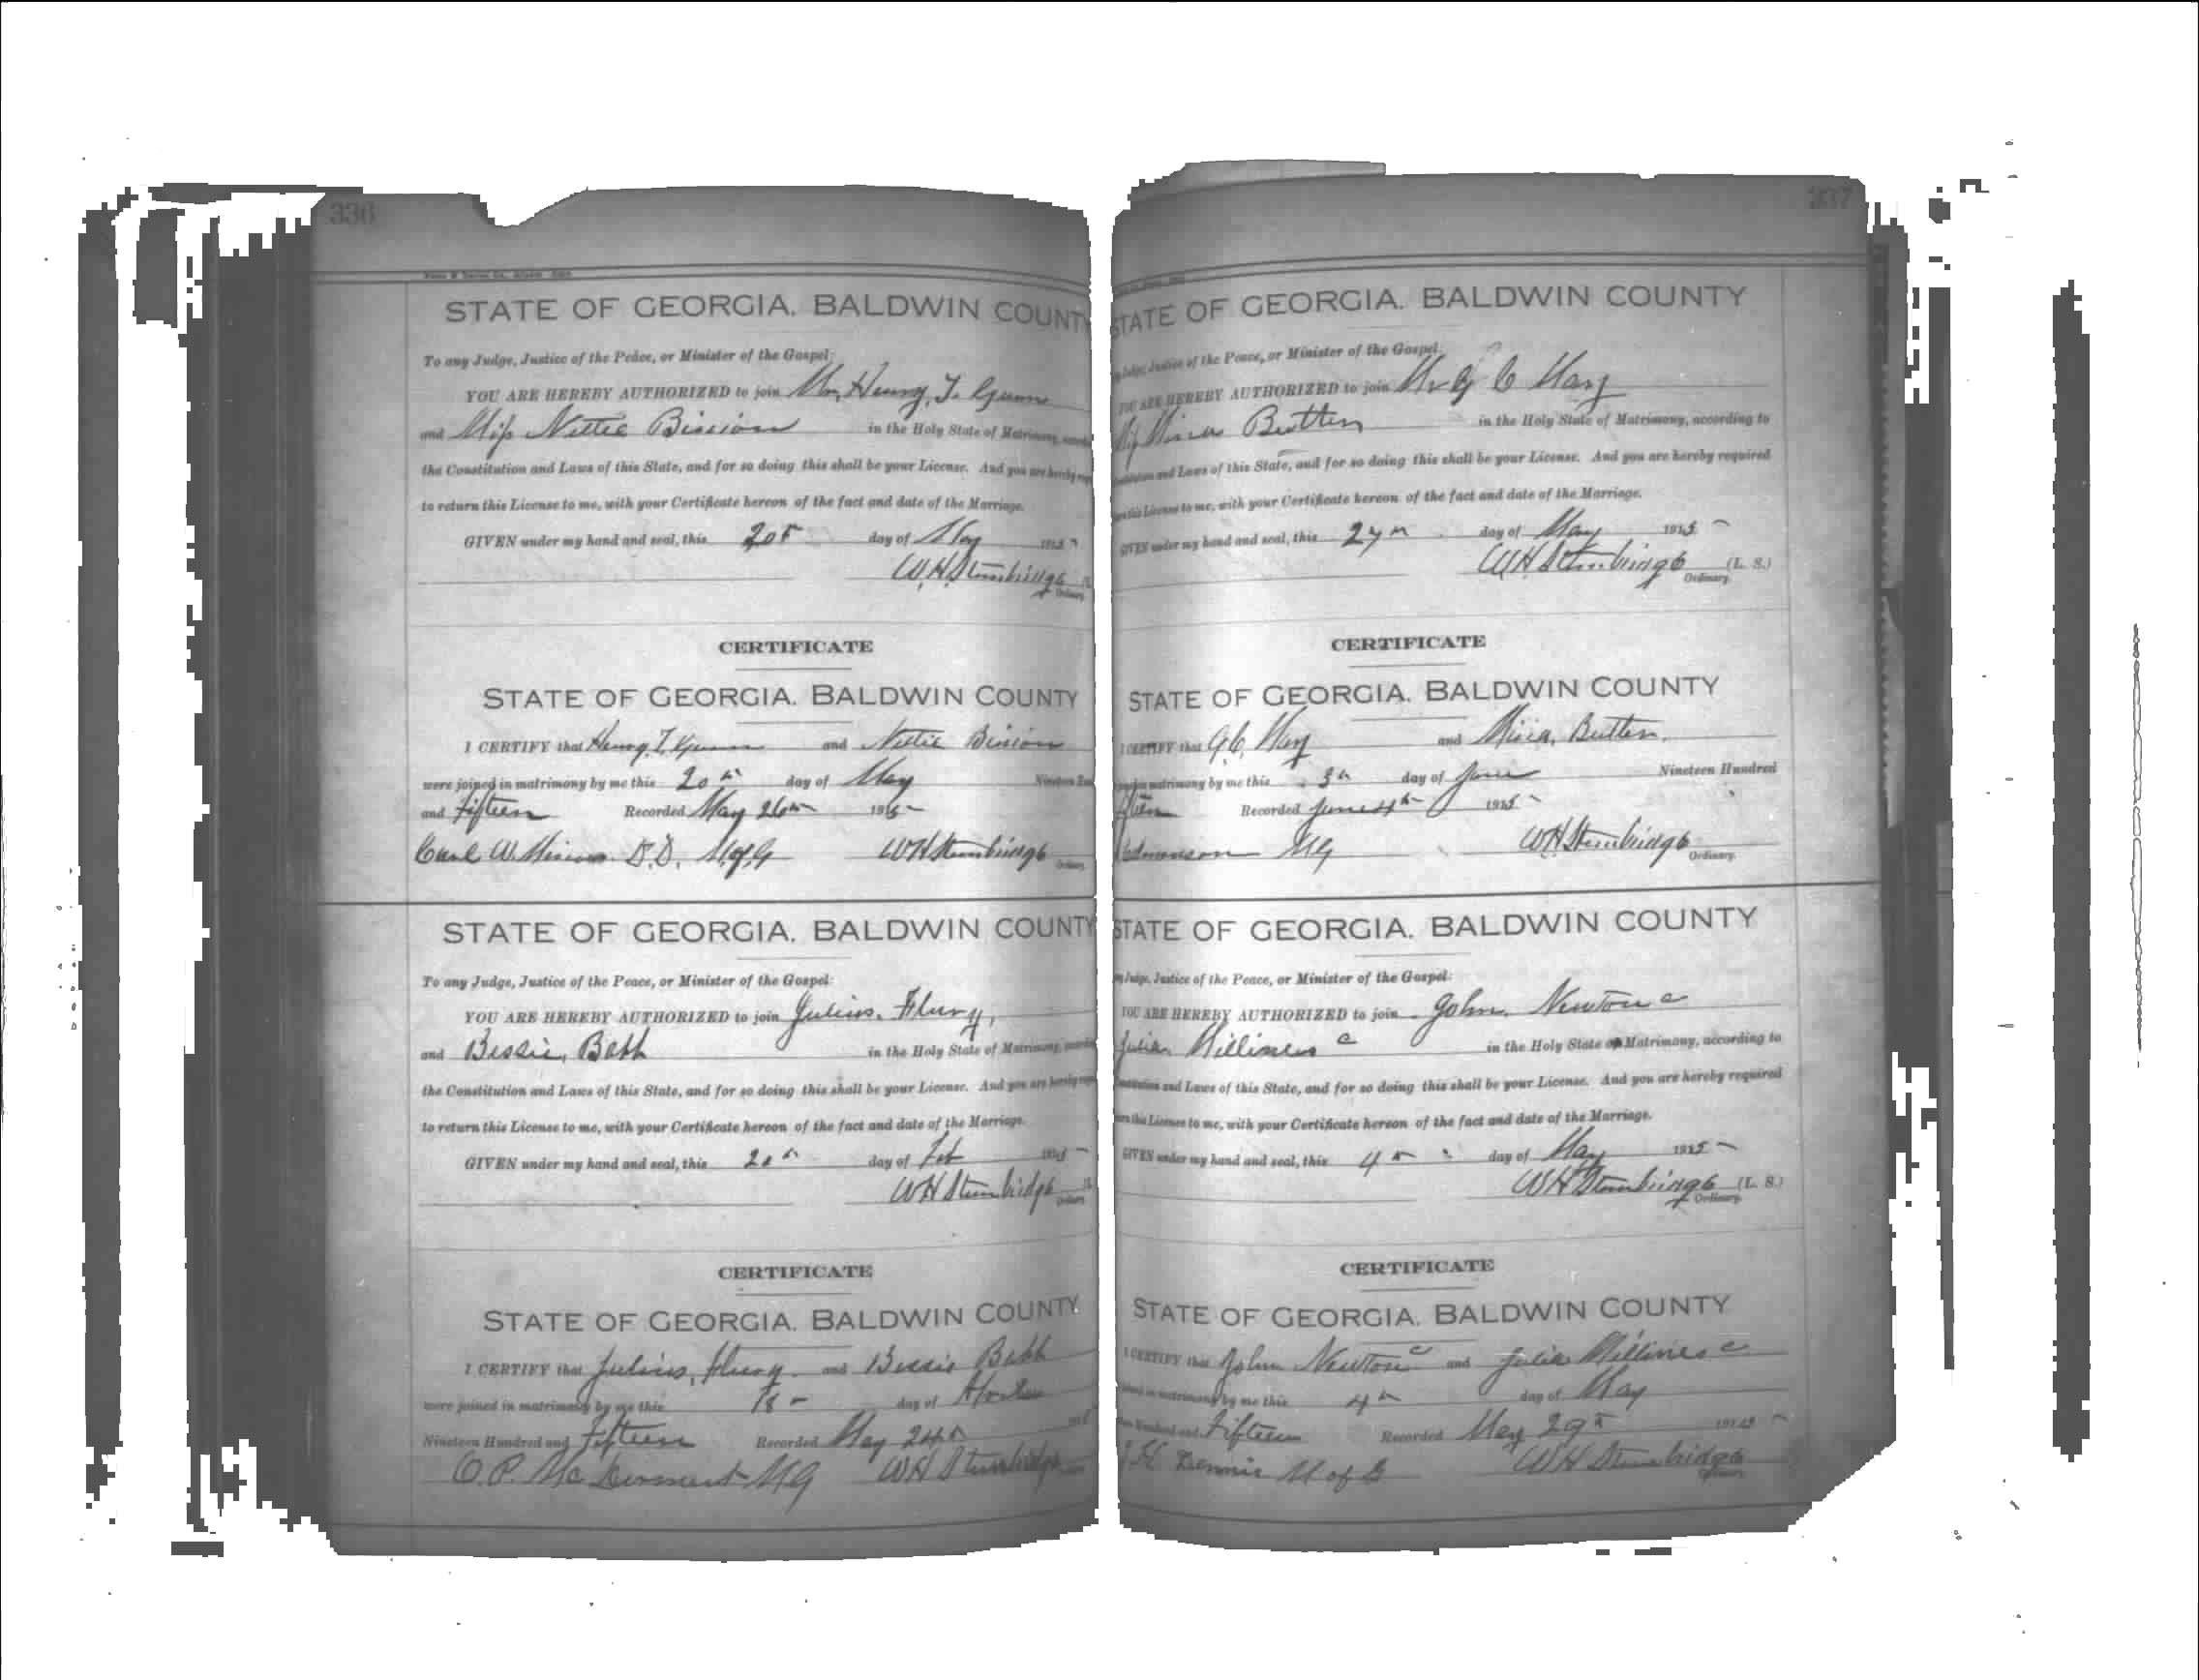 336
STATE OF GEORGIA. BALDWIN COUNT
To any Judge, Justice of the Peace, or Minister of the Gospel:
YOU ARE HEREBY AUTHORIZED to join Mr. Henry, T.
and Miss Nettie Binion in the Holy State of Matrimony,
the Constitution and Laws of this State, and for so doing this shall be your License. And you are hereby
to return this License to me, with your Certificate hereon of the fact and date of the Marriage.
GIVEN under my hand and seal, this 20 day of May 1915
W.H. Stembridge
Ordinary
CERTIFICATE
STATE OF GEORGIA. BALDWIN COUNTY
I CERTIFY that Henry, T. and Nettie Binion
were joined in matrimony by me this 20th day of May Nineteen
and Fifteen Recorded May 26th 1915
W. D.D. M.of.G WH Stembridge
STATE OF GEORGIA. BALDWIN COUNTY
To any Judge, Justice of the Peace, or Minister of the Gospel:
YOU ARE HEREBY AUTHORIZED to join Julius, Flury,
and Bessie, Babb in the Holy State of Matrimony,
the Constitution and Laws of this State, and for so doing this shall be your License. And you are hereby
to return this License to me, with your Certificate hereon of the fact and date of the Marriage.
GIVEN under my hand and seal, this 20th day of Feb 1915
WH Stembridge
CERTIFICATE
STATE OF GEORGIA. BALDWIN COUNTY
I CERTIFY that Julius, Flury. and Bessie Babb
were joined in matrimony by me this 18 day of
Nineteen Hundred and Fifteen Recorded May 24th
MG WH Stembridge
337
STATE OF GEORGIA. BALDWIN COUNTY
Judge, Justice of the Peace, or Minister of the Gospel:
YOU ARE HEREBY AUTHORIZED to join Mr G C
in the Holy State of Matrimony, according to
and Laws of this State, and for so doing this shall be your License. And you are hereby required
this License to me, with your Certificate hereon of the fact and date of the Marriage.
GIVEN under my hand and seal, this day of May 1915
WH Stembridge (L. S.)
Ordinary.
CERTIFICATE
STATE OF GEORGIA. BALDWIN COUNTY
I CERTIFY that G.C. and
matrimony by me this 3 day of June Nineteen Hundred
Recorded June 4th 1915
MG WH Stembridge
Ordinary.
STATE OF GEORGIA. BALDWIN COUNTY
Judge, Justice of the Peace, or Minister of the Gospel:
YOU ARE HEREBY AUTHORIZED to join John. Newton c
Julia c in the Holy State of Matrimony, according to
and Laws of this State, and for so doing this shall be your License. And you are hereby required
this License to me, with your Certificate hereon of the fact and date of the Marriage.
GIVEN under my hand and seal, this 4th day of May 1915
WH Stembridge (L. S.)
Ordinary.
CERTIFICATE
STATE OF GEORGIA. BALDWIN COUNTY
I CERTIFY that John Newton c and Julia c
in matrimony by me this 4th day of May
Hundred and Fifteen Recorded May 29th 1915
Dennis M of G WH Stembridge